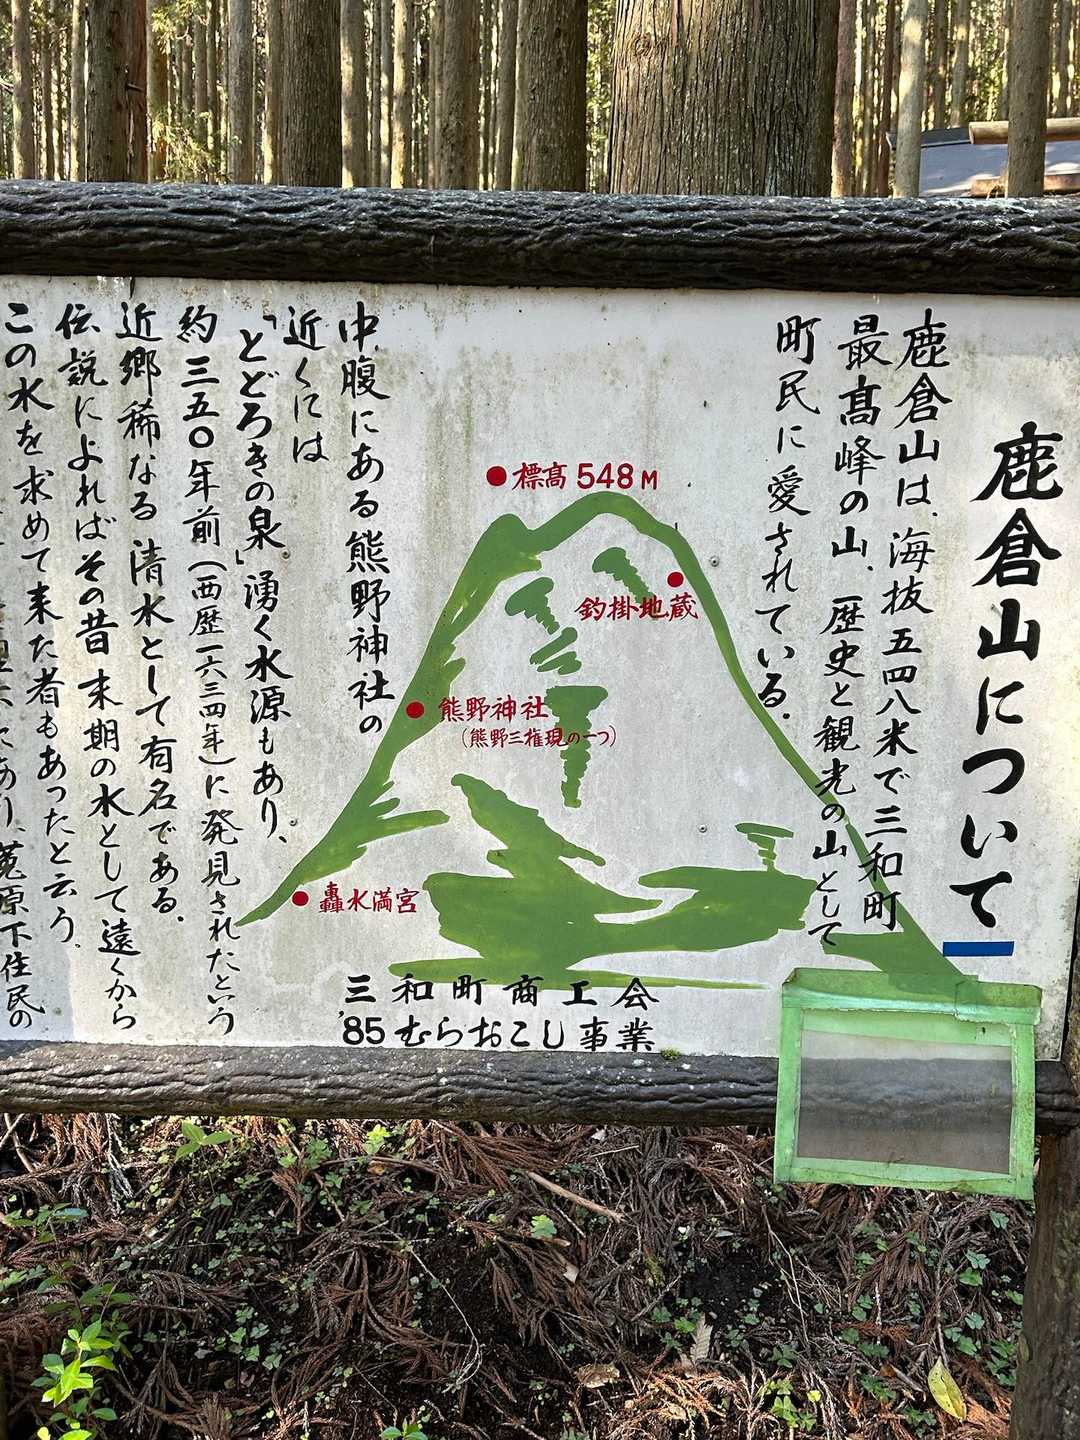 鹿倉山について
鹿倉山は、海抜五四八米で三和町
最高峰の山、歴史と観光の山として
町民に愛されている。
標高548M
釣掛地蔵
熊野神社
(熊野三権現の一つ)
轟水満宮
三和町商工会
'85むらおこし事業
中腹にある熊野神社の
近くには
「とどろきの泉」湧く水源もあり、
約三五〇年前(西歴一六三四年)に発見されたという
近郷稀なる清水として有名である。
伝説によればその昔末期の水として遠くから
この水を求めて来た者もあったと云う。
あり、菟原下住民の